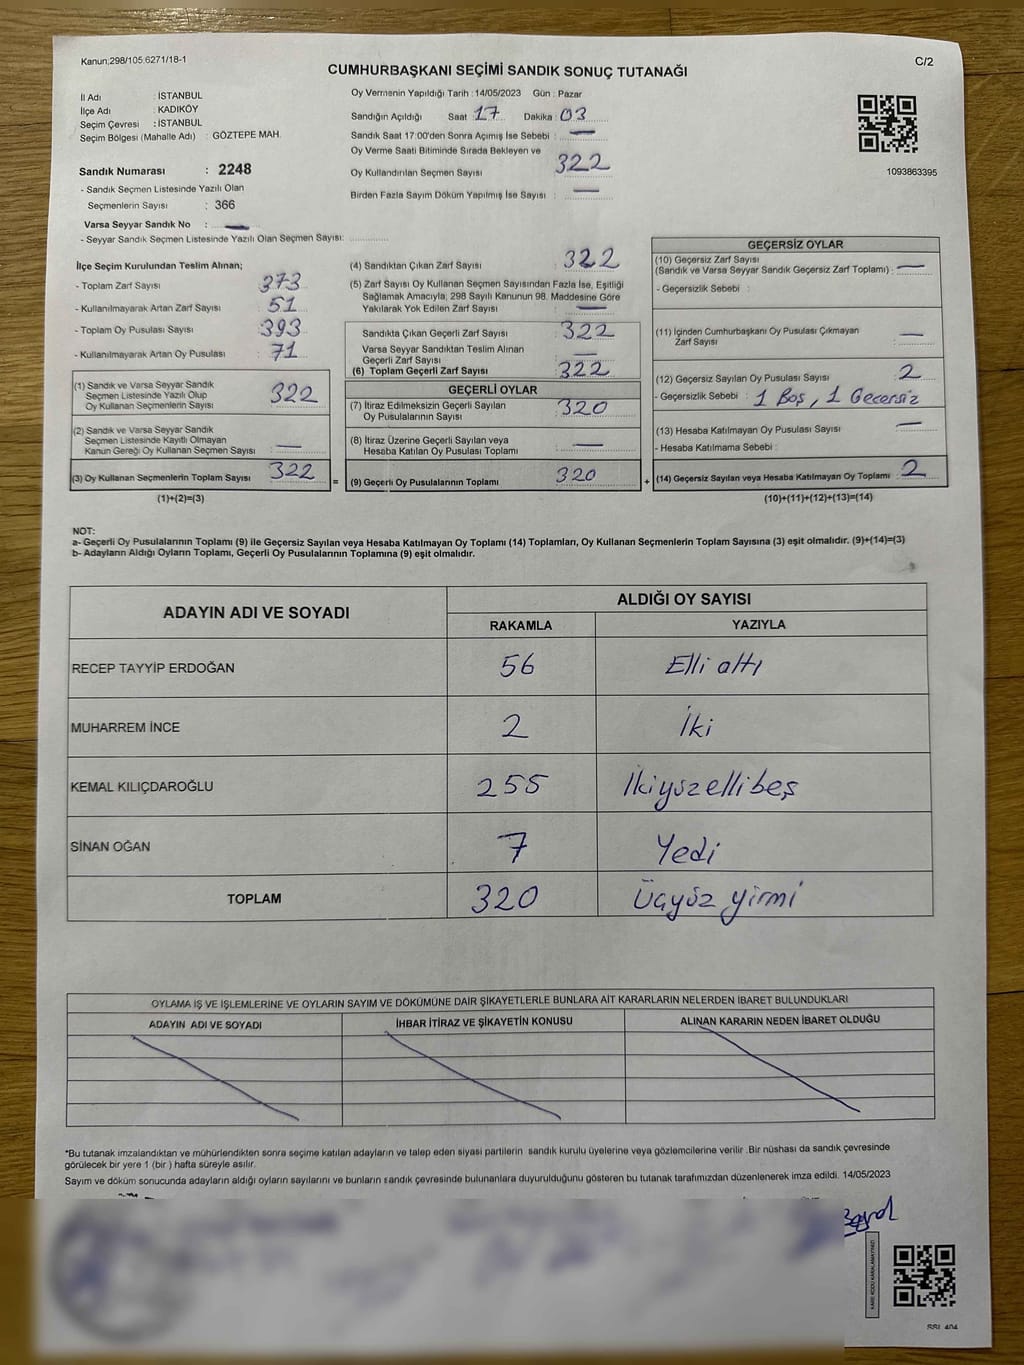 Kanun;298/105.6271/18-1
C/2
CUMHURBAŞKANI SEÇİMİ SANDIK SONUÇ TUTANAĞI
İl Adı : İSTANBUL
İlçe Adı : KADIKÖY
Seçim Çevresi : İSTANBUL
Seçim Bölgesi (Mahalle Adı) : GÖZTEPE MAH.
Sandık Numarası : 2248
- Sandık Seçmen Listesinde Yazılı Olan
Seçmenlerin Sayısı : 366
Varsa Seyyar Sandık No :
- Seyyar Sandık Seçmen Listesinde Yazılı Olan Seçmen Sayısı:
Oy Vermenin Yapıldığı Tarih : 14/05/2023 Gün : Pazar
Sandığın Açıldığı Saat 17 Dakika : 03
Sandık Saat 17:00'den Sonra Açımış İse Sebebi : —
Oy Verme Saati Bitiminde Sırada Bekleyen ve
Oy Kullandırılan Seçmen Sayısı 322
Birden Fazla Sayım Döküm Yapılmış İse Sayısı : —
1093863395
İlçe Seçim Kurulundan Teslim Alınan;
- Toplam Zarf Sayısı : 373
- Kullanılmayarak Artan Zarf Sayısı : 51
- Toplam Oy Pusulası Sayısı : 393
- Kullanılmayarak Artan Oy Pusulası : 71
(1) Sandık ve Varsa Seyyar Sandık
Seçmen Listesinde Yazılı Olup
Oy Kullanan Seçmenlerin Sayısı : 322
(2) Sandık ve Varsa Seyyar Sandık
Seçmen Listesinde Kayıtlı Olmayan
Kanun Gereği Oy Kullanan Seçmen Sayısı : —
(3) Oy Kullanan Seçmenlerin Toplam Sayısı : 322
(1)+(2)=(3)
=
(4) Sandıktan Çıkan Zarf Sayısı : 322
(5) Zarf Sayısı Oy Kullanan Seçmen Sayısından Fazla İse, Eşitliği
Sağlamak Amacıyla, 298 Sayılı Kanunun 98. Maddesine Göre
Yakılarak Yok Edilen Zarf Sayısı : —
Sandıkta Çıkan Geçerli Zarf Sayısı : 322
Varsa Seyyar Sandıktan Teslim Alınan
Geçerli Zarf Sayısı : —
(6) Toplam Geçerli Zarf Sayısı : 322
GEÇERLİ OYLAR
(7) İtiraz Edilmeksizin Geçerli Sayılan
Oy Pusulalarının Sayısı : 320
(8) İtiraz Üzerine Geçerli Sayılan veya
Hesaba Katılan Oy Pusulası Toplamı : —
(9) Geçerli Oy Pusulalarının Toplamı : 320
+
GEÇERSİZ OYLAR
(10) Geçersiz Zarf Sayısı
(Sandık ve Varsa Seyyar Sandık Geçersiz Zarf Toplamı) : —
- Geçersizlik Sebebi :
(11) İçinden Cumhurbaşkanı Oy Pusulası Çıkmayan
Zarf Sayısı : —
(12) Geçersiz Sayılan Oy Pusulası Sayısı : 2
- Geçersizlik Sebebi : 1 Boş, 1 Gecersiz
(13) Hesaba Katılmayan Oy Pusulası Sayısı : —
- Hesaba Katılmama Sebebi :
(14) Geçersiz Sayılan veya Hesaba Katılmayan Oy Toplamı : 2
(10)+(11)+(12)+(13)=(14)
NOT:
a- Geçerli Oy Pusulalarının Toplamı (9) ile Geçersiz Sayılan veya Hesaba Katılmayan Oy Toplamı (14) Toplamları, Oy Kullanan Seçmenlerin Toplam Sayısına (3) eşit olmalıdır. (9)+(14)=(3)
b- Adayların Aldığı Oyların Toplamı, Geçerli Oy Pusulalarının Toplamına (9) eşit olmalıdır.
ADAYIN ADI VE SOYADI
ALDIĞI OY SAYISI
RAKAMLA YAZIYLA
RECEP TAYYİP ERDOĞAN 56 Elli altı
MUHARREM İNCE 2 İki
KEMAL KILIÇDAROĞLU 255 İkiyüzellibeş
SİNAN OĞAN 7 Yedi
TOPLAM 320 Üçyüz yirmi
OYLAMA İŞ VE İŞLEMLERİNE VE OYLARIN SAYIM VE DÖKÜMÜNE DAİR ŞİKAYETLERLE BUNLARA AİT KARARLARIN NELERDEN İBARET BULUNDUKLARI
ADAYIN ADI VE SOYADI İHBAR İTİRAZ VE ŞİKAYETİN KONUSU ALINAN KARARIN NEDEN İBARET OLDUĞU
*Bu tutanak imzalandıktan ve mühürlendikten sonra seçime katılan adayların ve talep eden siyasi partilerin sandık kurulu üyelerine veya gözlemcilerine verilir .Bir nüshası da sandık çevresinde
görülecek bir yere 1 (bir ) hafta süreyle asılır.
Sayım ve döküm sonucunda adayların aldığı oyların sayılarını ve bunların sandık çevresinde bulunanlara duyurulduğunu gösteren bu tutanak tarafımızdan düzenlenerek imza edildi. 14/05/2023
KARE KODU KARALAMAYINIZ!